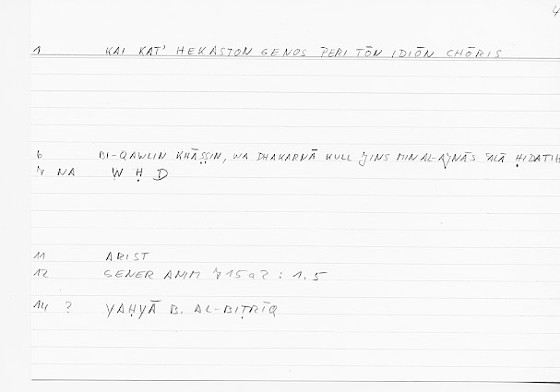 4
1 KAI KAT' HEKASTON GENOS PERI TŌN IDIŌN CHŌRIS
6 BI-QAWLIN KHĀṢṢIN, WA DHAKARNĀ KULL ǦINS MIN AL-AǦNĀS ʿALĀ ḤIDATIH
7 NA W Ḥ D
11 ARIST
12 GENER ANIM 715a2 : 1.5
14 ? YAḤYĀ B. AL-BIṬRĪQ